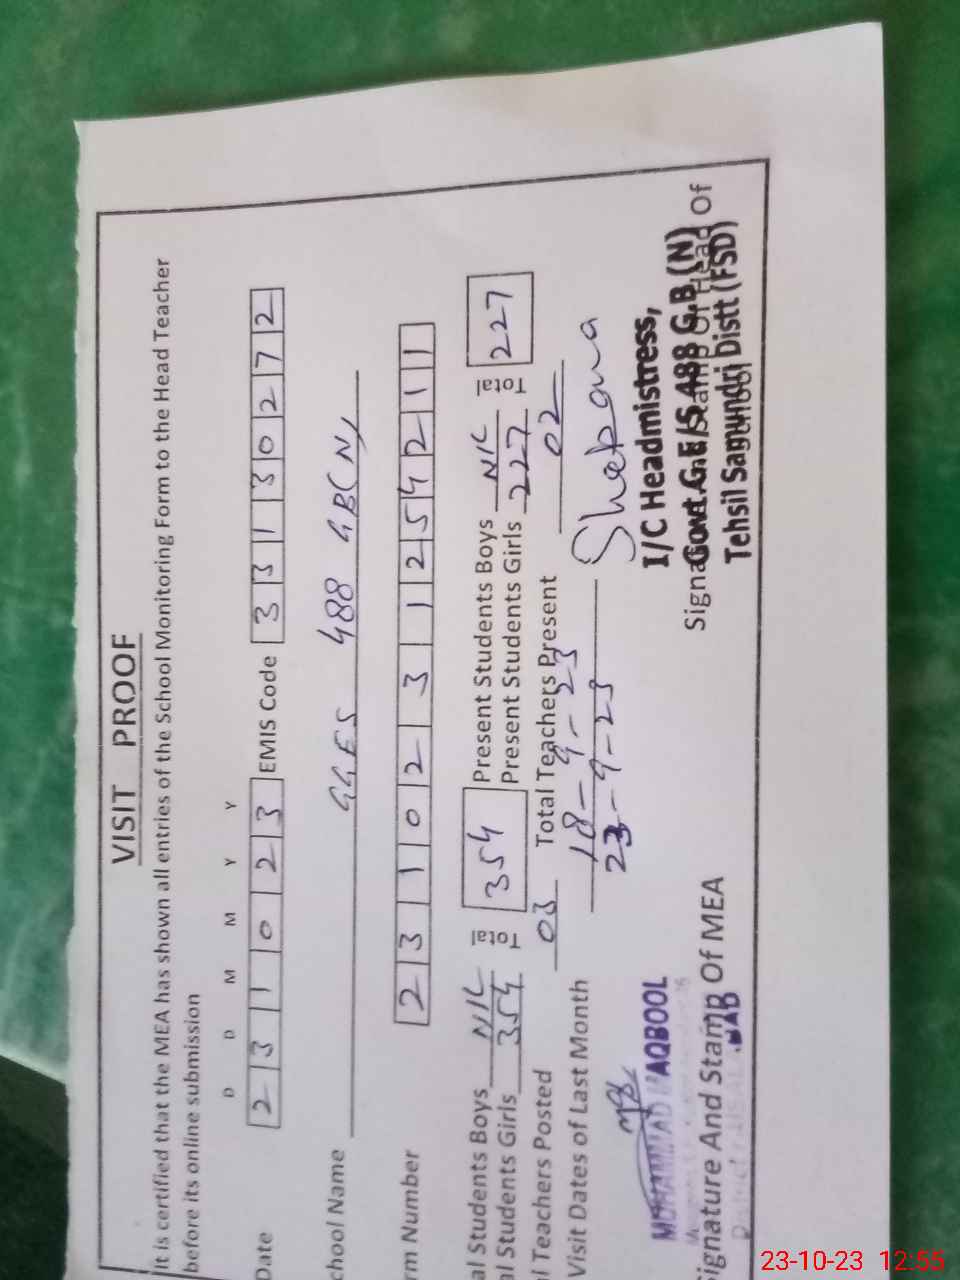 VISIT PROOF
It is certified that the MEA has shown all entries of the School Monitoring Form to the Head Teacher
before its online submission
D D M M Y Y
Date 2 3 1 0 2 3 EMIS Code 3 3 1 3 0 2 7 2
chool Name GGES 488 GB(N)
rm Number 2 3 1 0 2 3 1 1 2 5 4 2 1 1
al Students Boys NIL Total 354 Present Students Boys NIL Total 227
al Students Girls 354 Present Students Girls 227
l Teachers Posted 03 Total Teachers Present 02
Visit Dates of Last Month 18-9-23
23-9-23
MUHAMMAD MAQBOOL
I/C Headmistress,
Govt. G.E/S 488 G.B (N)
Tehsil Samundri Distt (FSD)
ignature And Stamp Of MEA
Signature And Stamp Of Head Of
23-10-23 12:55